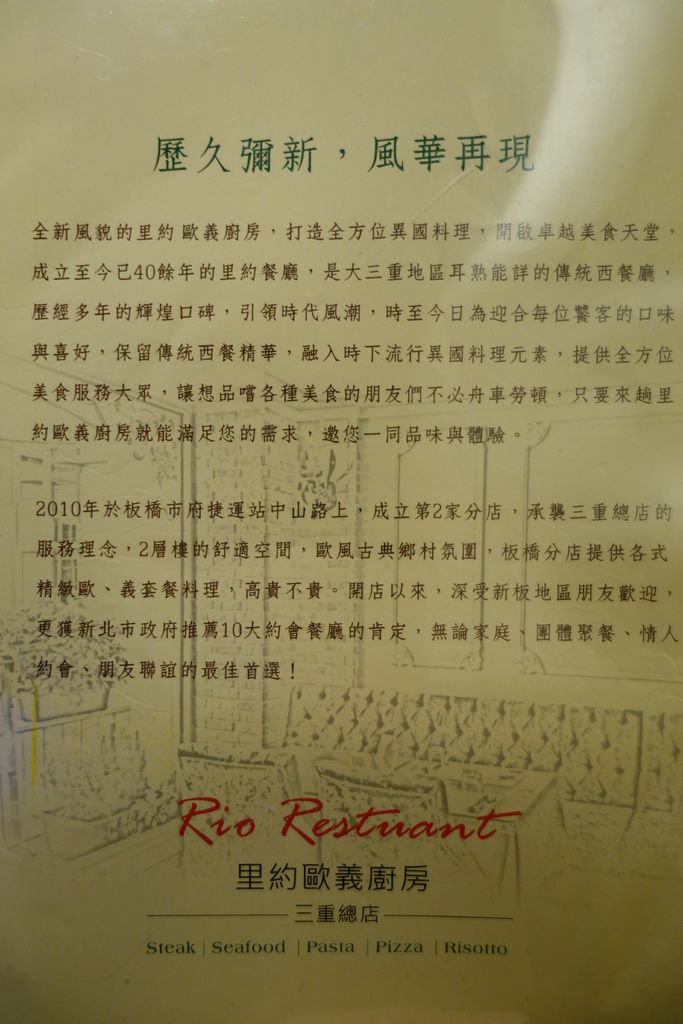 歷久彌新，風華再現
全新風貌的里約歐義廚房，打造全方位異國料理，開啟卓越美食天堂，
成立至今已40餘年的里約餐廳，是大三重地區耳熟能詳的傳統西餐廳，
歷經多年的輝煌口碑，引領時代風潮，時至今日為迎合每位饕客的口味
與喜好，保留傳統西餐精華，融入時下流行異國料理元素，提供全方位
美食服務大眾，讓想品嚐各種美食的朋友們不必舟車勞頓，只要來趟里
約歐義廚房就能滿足您的需求，邀您一同品味與體驗。
2010年於板橋市府捷運站中山路上，成立第2家分店，承襲三重總店的
服務理念，2層樓的舒適空間，歐風古典鄉村氛圍，板橋分店提供各式
精緻歐、義套餐料理，高貴不貴。開店以來，深受新板地區朋友歡迎，
更獲新北市政府推薦10大約會餐廳的肯定，無論家庭、團體聚餐、情人
約會、朋友聯誼的最佳首選！
Rio Restuant
里約歐義廚房
三重總店
Steak | Seafood | Pasta | Pizza | Risotto